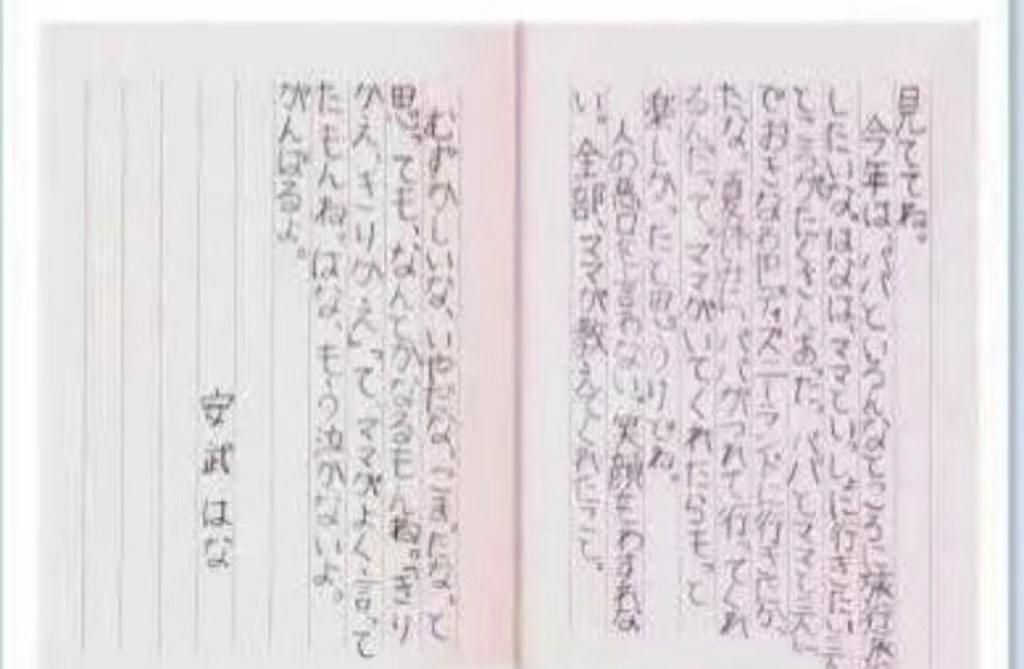 見ててね。
今年は、パパといろんなところに旅行
したいな。はなは、ママといっしょに行きたい
ところがたくさんあった。パパとママと三人
でおそろいでディズニーランドに行きたか
たな。夏休みに、パパがつれて行ってくれ
るんだって。ママがいてくれたらもっと
楽しかったと思うけどね。
人の悪口を言わない。笑顔をわすれな
い。全部、ママが教えてくれたこと。
むずかしいな、いやだな、こまったな、って
思っても、なんとかなるもんね。「きり
かえ、きりかえ」って、ママがよく言って
たもんね。はな、もう泣かないよ。
がんばるよ。
安武はな